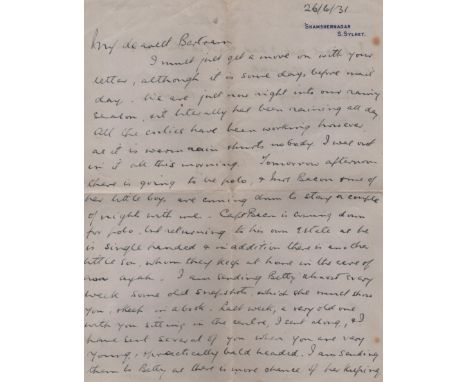 26/6/31
SHAMSHERNAGAR
S. SYLHET.
My dearest Bertram
I must just get a move on with your
letter, although it is some days before mail
day. We are just now right into our rainy
season, & it literally has been raining all day
All the coolies have been working however
as it is warm rain & hurts nobody I was out
in it all this morning. Tomorrow afternoon
there is going to be polo, & Mrs Bacon & one of
her little boys, are coming down to stay a couple
of nights with me. Capt Bacon is coming down
for polo, but returning to his own estate as he
is single handed & in addition there is another
little son, whom they keep at home in the care of
an ayah. I am sending Betty almost every
week some old snapshots, which she must show
you, & keep in a book. Last week, a very old one
with you sitting in the centre, I sent along, & I
have sent several of you when you are very
young, & practically bald headed. I am sending
them to Betty as there is more chance of her keeping